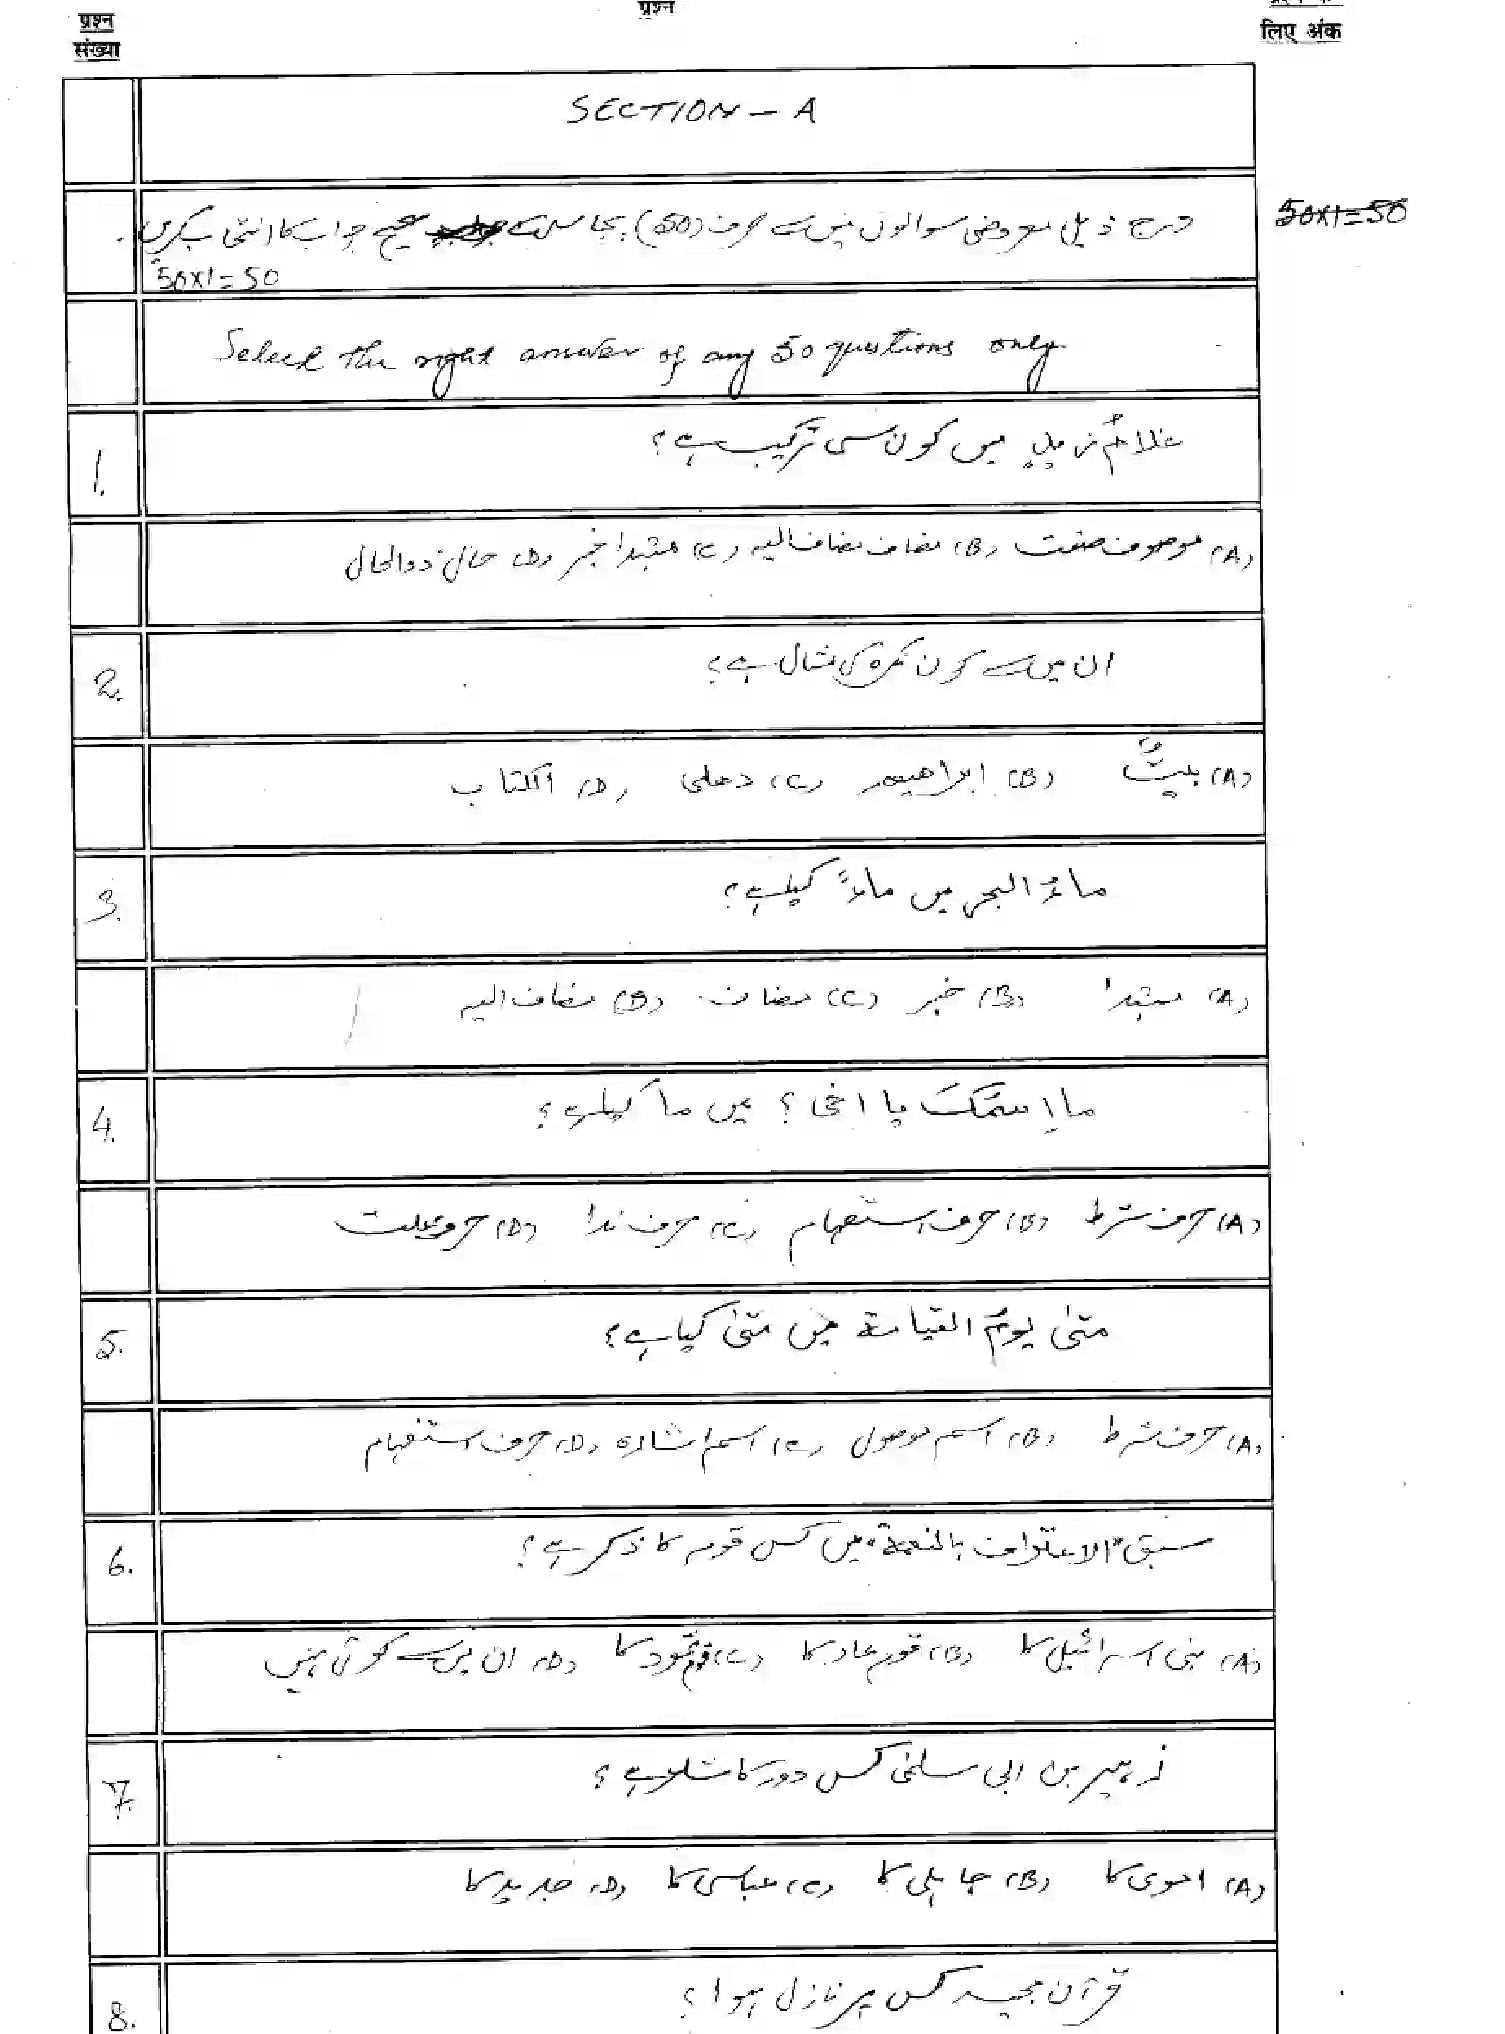 प्रश्न
संख्या
प्रश्न
लिए अंक
SECTION - A
درج ذیل معروضی سوالوں میں سے صرف (50) پچاس کے صحیح جواب کا انتخاب کریں۔
50x1=50
50x1=50
Select the right answer of any 50 questions only.
1. غلامُ زیدٍ میں کون سی ترکیب ہے؟
(A) موصوف صفت (B) مضاف مضاف الیہ (C) مبتدا خبر (D) حال ذوالحال
2. ان میں سے کون نکرہ کی مثال ہے؟
(A) بیتٌ (B) ابراھیم (C) دھلی (D) الکتاب
3. ماءُ البحر میں ماءُ کیا ہے؟
(A) مبتدا (B) خبر (C) مضاف (D) مضاف الیہ
4. ما اِسمُکَ یا اخی؟ میں ما کیا ہے؟
(A) حرف شرط (B) حرف استفہام (C) حرف ندا (D) حرف علت
5. متیٰ یومُ القیامة میں متیٰ کیا ہے؟
(A) حرف شرط (B) اسم موصول (C) اسم اشارہ (D) حرف استفہام
6. سبق "الاعتراف بالنعمة" میں کس قوم کا ذکر ہے؟
(A) بنی اسرائیل کا (B) قوم عاد کا (C) قوم ثمود کا (D) ان میں سے کوئی نہیں
7. زہیر بن ابی سلمیٰ کس دور کا شاعر ہے؟
(A) اموی کا (B) جاہلی کا (C) عباسی کا (D) جدید کا
8. قرآن مجید کس پر نازل ہوا؟